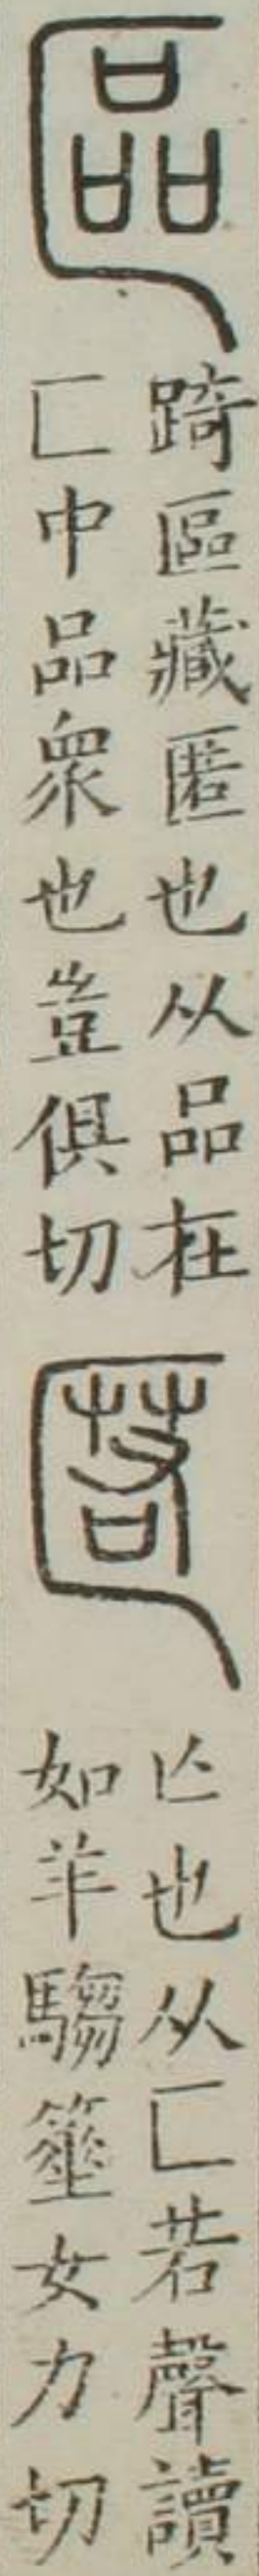 區
踦區藏匿也从品在
匸中品衆也豈俱切
匿
亾也从匸若聲讀
如羊騶箠女力切